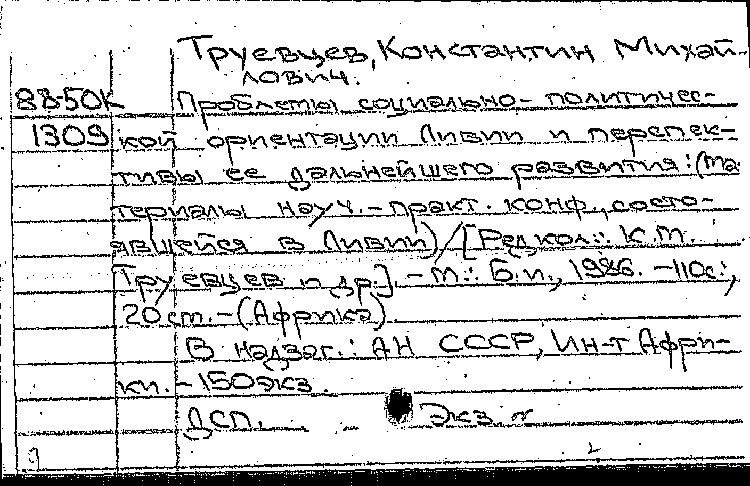 Труевцев, Константин Михай-
лович.
88-50к Проблемы социально-политичес-
1309 кой ориентации Ливии и перспек-
тивы ее дальнейшего развития: (Ма-
териалы науч.-практ. конф., состо-
явшейся в Ливии) / [Редкол.: К.М.
Труевцев и др.]. - М.: Б.и., 1986. - 110с.;
20 cm. - (Африка).
В надзаг.: АН СССР, Ин-т Афри-
ки. - 150экз.
ДСП. Экз. №